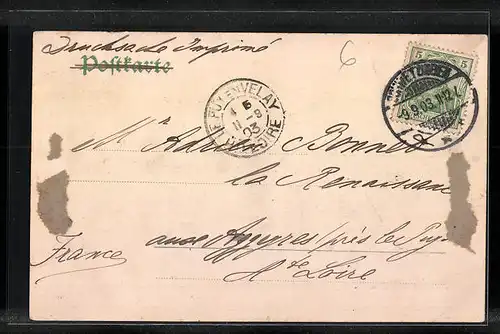 Drucksache Imprimé
Postkarte
6
5 5
LE PUY-EN-VELAY
5
11-9
03
Hte LOIRE
9.03.
Mr Adrien Bonnet
la Renaissance
aux
près le Puy
France
Hte Loire